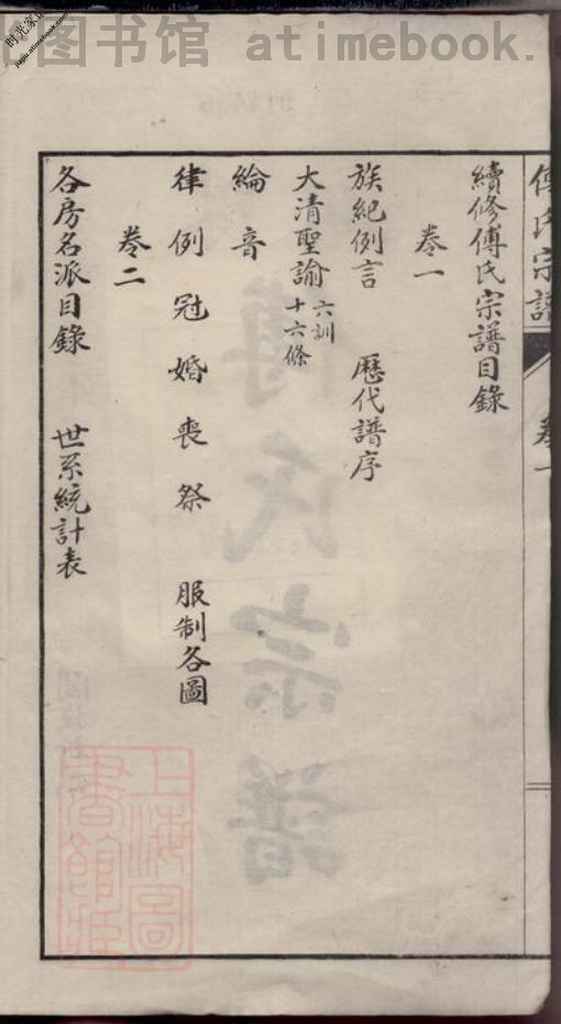 图书馆 atimebook.
时光家谱
jiapu.atimebook.com
傅氏宗譜
卷一
續修傅氏宗譜目錄
卷一
族紀例言 歷代譜序
大清聖諭 六訓 十六條
綸音
律例冠婚喪祭 服制各圖
卷二
各房名派目錄 世系統計表
傅氏宗譜
上海圖書館藏